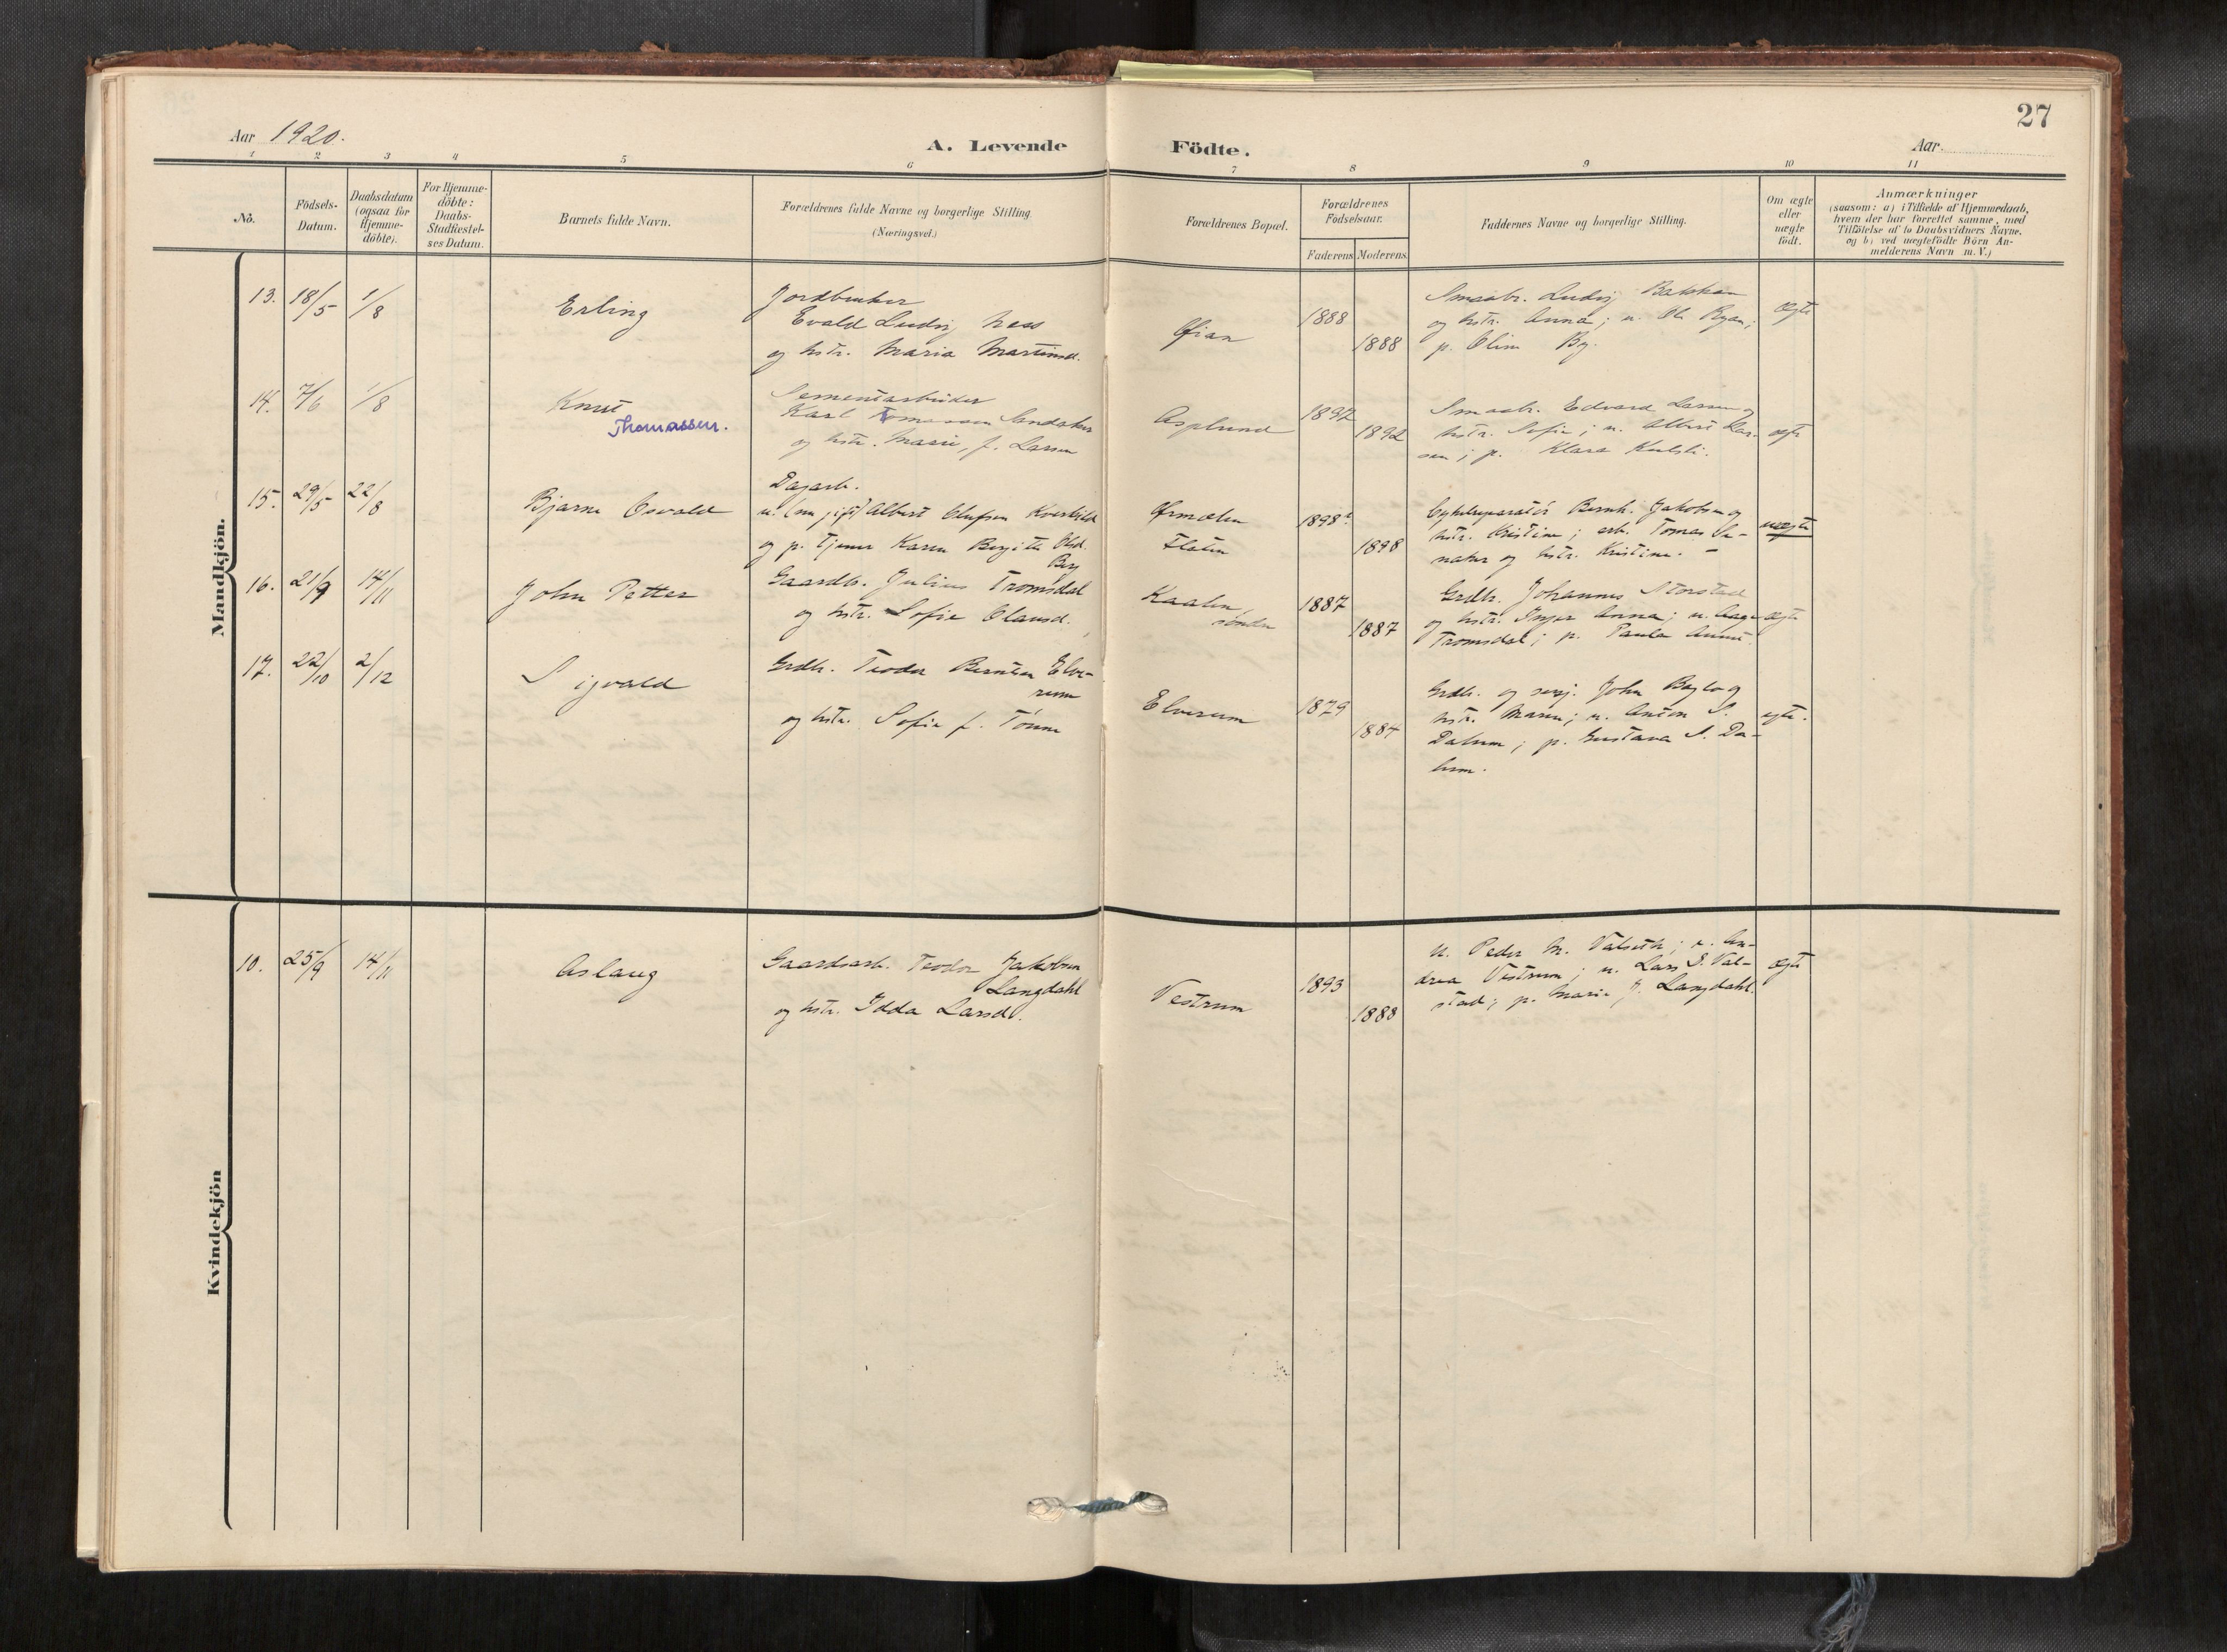 27
Aar 1920.
A. Levende Födte.
Aar
1 2 3 4 5 6 7 8 9 10 11
No.
Födsels-Datum.
Daabsdatum (ogsaa for Hjemme-döbte).
For Hjemme-döbte: Daabs-Stadfæstel-ses Datum.
Barnets fulde Navn.
Forældrenes fulde Navne og borgerlige Stilling. (Næringsvei.)
Forældrenes Bopæl.
Forældrenes Födselsaar.
Faderens Moderens.
Faddernes Navne og borgerlige Stilling.
Om ægte eller uægte födt.
Anmærkninger
(saasom: a) i Tilfælde af Hjemmedaab,
hvem der har forrettet samme, med
Tilföielse af to Daabsvidners Navne,
og b) ved uægtefödte Börn An-
melderens Navn m. V.)
Mandkjön.
13. 18/5 1/8 Erling
Jordbruker
Evald Ludvig Næss
og hstr. Maria Martinsd.
1888
1888
Smaabr. Ludvig Bakken
og hstr. Anna; u. Ole Ryan;
p. Oline By.
ægte
14. 7/6 1/8 Knut
Thomassen.
Sementarbeider
Karl Tomassen Sandaker
og hstr. Marie, f. Larsen
Asplund
1892
1892
Smaabr. Edvard Larsen og
hstr. Sofie; u. Albert Lar-
sen; p. Klara
ægte
15. 29/5 22/8 Bjarne Osvald
Dagarb.
u. (nu gift) Albert Olufsen Kverkild
og p. tjener Karen Bergitte Olsd.
By
Ørmælen
Flaten
1898
1898
Cykelreparatör Bernh. Jakobsen og
hstr. Kristine; arb. Tomas
og hstr. Kristine. –
uægte
16. 21/9 14/11 John Petter
Gaardbr. Julius Tromsdal
og hstr. Sofie Olausd.
Kaalen,
söndre
1887
1887
Grdbr. Johannes Storstad
og hstr. Inger Anna; u. Aage
Tromsdal; p. Paula
ægte
17. 22/10 2/12 Sigvald
Grdbr. Teodor Berntsen Elve-
rum
og hstr. Sofie f. Tönne
Elverum
1879
1884
Grdbr. og sersj. John Baglo og
hstr. Maren; u. Anton S.
Dalum; p. Gustava S. Da-
lum.
ægte.
Kvindekjön
10. 25/9 14/11 Aslaug
Gaardsarb. Teodor Jakobsen
Langdahl
og hstr. Idda Larsd.
Vestrum
1893
1888
u. Peder M. Valseth; p. An-
drea Vestrum; u. Lars S. Val-
stad; p. Marie J. Langdahl.
ægte